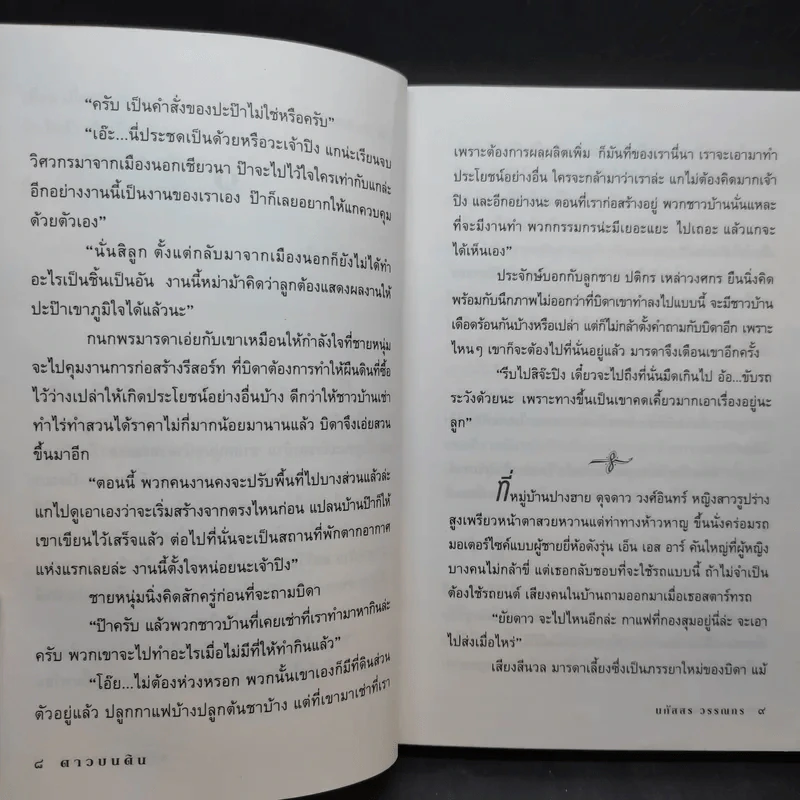 “ครับ เป็นคำสั่งของปะป๊าไม่ใช่หรือครับ”
“เอ๊ะ...นี่ประชดเป็นด้วยหรือวะเจ้าปิง แกน่ะเรียนจบ
วิศวกรมาจากเมืองนอกเชียวนา ป๊าจะไปไว้ใจใครเท่ากับแกล่ะ
อีกอย่างงานนี้เป็นงานของเราเอง ป๊าก็เลยอยากให้แกควบคุม
ด้วยตัวเอง”
“นั่นสิลูก ตั้งแต่กลับมาจากเมืองนอกก็ยังไม่ได้ทำ
อะไรเป็นชิ้นเป็นอัน งานนี้หม่าม้าคิดว่าลูกต้องแสดงผลงานให้
ปะป๊าเขาภูมิใจได้แล้วนะ”
กนกพรมารดาเอ่ยกับเขาเหมือนให้กำลังใจที่ชายหนุ่ม
จะไปคุมงานการก่อสร้างรีสอร์ท ที่บิดาต้องการทำให้ผืนดินที่ซื้อ
ไว้ว่างเปล่าให้เกิดประโยชน์อย่างอื่นบ้าง ดีกว่าให้ชาวบ้านเช่า
ทำไร่ทำสวนได้ราคาไม่กี่มากน้อยมานานแล้ว บิดาจึงเอ่ยสวน
ขึ้นมาอีก
“ตอนนี้ พวกคนงานคงจะปรับพื้นที่ไปบางส่วนแล้วล่ะ
แกไปดูเอาเองว่าจะเริ่มสร้างจากตรงไหนก่อน แปลนบ้านป๊าก็ให้
เขาเขียนไว้เสร็จแล้ว ต่อไปที่นั่นจะเป็นสถานที่พักตากอากาศ
แห่งแรกเลยล่ะ งานนี้ตั้งใจหน่อยนะเจ้าปิง”
ชายหนุ่มนิ่งคิดสักครู่ก่อนที่จะถามบิดา
“ป๊าครับ แล้วพวกชาวบ้านที่เคยเช่าที่เราทำมาหากินล่ะ
ครับ พวกเขาจะไปทำอะไรเมื่อไม่มีที่ให้ทำกินแล้ว”
“โอ๊ย...ไม่ต้องห่วงหรอก พวกนั้นเขาเองก็มีที่ดินส่วน
ตัวอยู่แล้ว ปลูกกาแฟบ้างปลูกต้นชาบ้าง แต่ที่เขามาเช่าที่เรา
๘ ดาวบนดิน
เพราะต้องการผลผลิตเพิ่ม ก็มันที่ของเรานี่นา เราจะเอามาทำ
ประโยชน์อย่างอื่น ใครจะกล้ามาว่าเราล่ะ แกไม่ต้องคิดมากเจ้า
ปิง และอีกอย่างนะ ตอนที่เราก่อสร้างอยู่ พวกชาวบ้านนั่นแหละ
ที่จะมีงานทำ พวกกรรมกรน่ะมีเยอะแยะ ไปเถอะ แล้วแกจะ
ได้เห็นเอง”
ประจักษ์บอกกับลูกชาย ปติกร เหล่าวงศกร ยืนนิ่งคิด
พร้อมกับนึกภาพไม่ออกว่าที่บิดาเขาทำลงไปแบบนี้ จะมีชาวบ้าน
เดือดร้อนกันบ้างหรือเปล่า แต่ก็ไม่กล้าตั้งคำถามกับบิดาอีก เพราะ
ไหนๆ เขาก็จะต้องไปที่นั่นอยู่แล้ว มารดาจึงเตือนเขาอีกครั้ง
“รีบไปสิจ๊ะปิง เดี๋ยวจะไปถึงที่นั่นมืดเกินไป อ้อ...ขับรถ
ระวังด้วยนะ เพราะทางขึ้นเป็นเขาคดเคี้ยวมากเอาเรื่องอยู่นะ
ลูก”
ที่หมู่บ้านปางฮาย ดุจดาว วงศ์อินทร์ หญิงสาวรูปร่าง
สูงเพรียวหน้าตาสวยหวานแต่ท่าทางห้าวหาญ ขึ้นนั่งคร่อมรถ
มอเตอร์ไซค์แบบผู้ชายยี่ห้อดังรุ่น เอ็น เอส อาร์ คันใหญ่ที่ผู้หญิง
บางคนไม่กล้าขี่ แต่เธอกลับชอบที่จะใช้รถแบบนี้ ถ้าไม่จำเป็น
ต้องใช้รถยนต์ เสียงคนในบ้านถามออกมาเมื่อเธอสตาร์ทรถ
“ยัยดาว จะไปไหนอีกล่ะ กาแฟที่กองสุมอยู่นี่ล่ะ จะเอา
ไปส่งเมื่อไหร่”
เสียงสีนวล มารดาเลี้ยงซึ่งเป็นภรรยาใหม่ของบิดา แม้
นภัสสร วรรณกร ๙